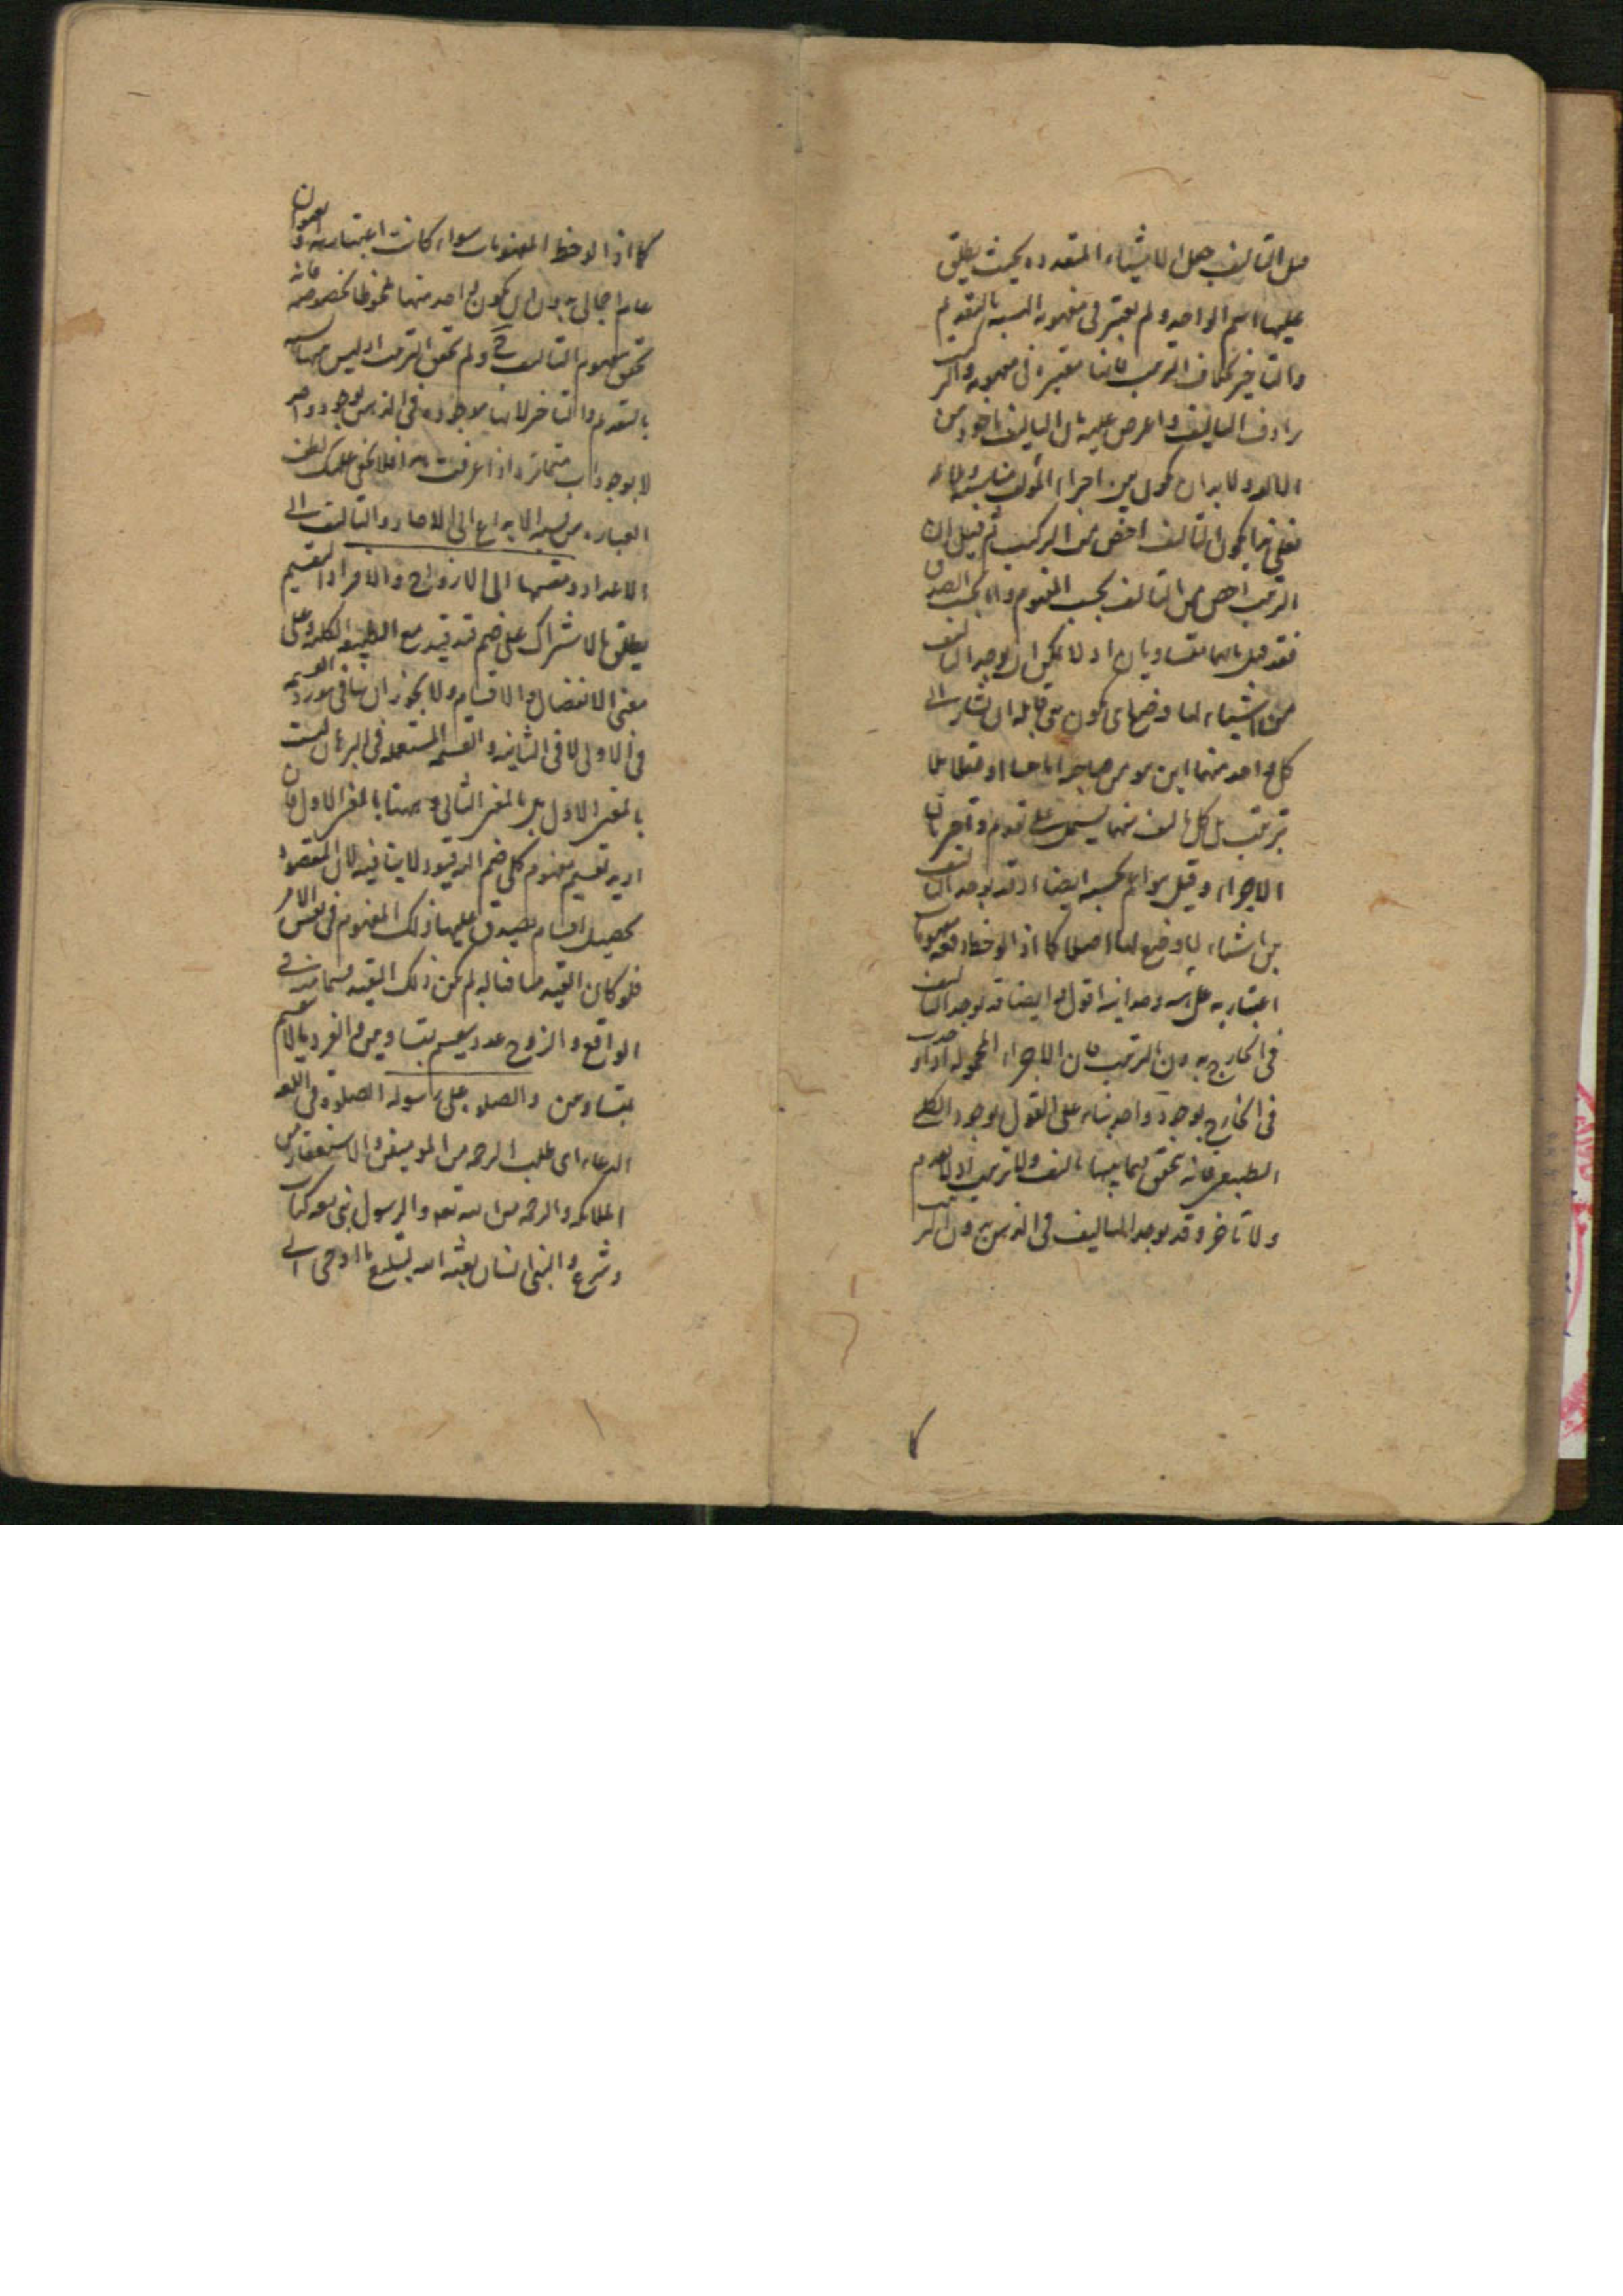 قيل التأليف جعل الاشياء المتعدده بحيث يطلق
عليها اسم الواحد ولم يعتبر فى مفهومه النسبه بالتقديم
والتاخير بخلاف الترتيب فانها معتبرة فى مفهومه والتركيب
رادف التأليف واعرض عليه بان التأليف ماخوذ من
الالفه ولا بد ان يكون بين اجزاء المؤلف مناسبة
فعلى هذا يكون التأليف اخص من التركيب ثم قيل ان
الترتيب اخص من التأليف بحسب المفهوم واما بحسب الصدق
فقد قيل بانهما متساويان اذ لا يمكن ان يوجد التأليف
من اشياء لها وضع اى يكون بحيث قابله ان يشار الى
كل واحد منها اين هو من صاحبه
ترتيب بل كل تأليف منها يستدعى تقدم وتأخر بين
الاجزاء وقيل هو اعم بحسبه ايضا اذ قد يوجد التأليف
بين اشياء لا وضع لها اصلا كما اذا لوحظ دفعه مفهومات
اعتباريه على اقول وايضا قد يوجد التأليف
فى الخارج بدون الترتيب فان الاجزاء المحموله
فى الخارج بوجود واحد بناء على القول بوجود الكلى
الطبيعى فانه تحقق فيما بينها تأليف ولا ترتيب اذ لا تقدم
ولا تأخر وقد يوجد التأليف فى الذهن بدون الترتيب
كما اذا لوحظ المفهومات سواء كانت اعتباريه او
علم اجمالى بدون ان يكون واحد منها ملحوظا بخصوصه فانه
تحقق مفهوم التأليف ولم تحقق الترتيب اذ ليس
بالتقدم والتأخر لانها موجوده فى الذهن بوجود واحد
لا بوجودات متمايزه واذا عرفت هذا فلا يخفى عليك لطف
العباره من نسبه الابداع الى الاحاد والتأليف الى
الاعداد وقسمها الى الازواج والافراد التقسيم
يطلق بالاشتراك على ضم قيد قيد مع الطبيعه الكليه وعلى
معنى الانفصال والاقسام ولا يجوز ان ينافى مورد القسمه
فى الاولى لا فى الثانيه والقسمه المستعمله فى البرهان ليست
بالمعنى الاول بل بالمعنى الثانى وههنا بالمعنى الاول فان
اريد تقسيم مفهوم كلى ضم اليه قيود لا ينافيه لان المقصود
تحصيل اقسام يصدق عليها ذلك المفهوم فى نفس الامر
فلو كان القيد منافيا له لم يكن ذلك القيد قسما منه فى
الواقع والزوج عدد ينقسم بمتساويين والفرد ما لا ينقسم
بمتساويين والصلوة على رسوله الصلوة فى اللغه
الدعاء اى طلب الرحمه من المؤمنين والاستغفار من
الملائكه والرحمه من الله تعه والرسول نبى معه كتاب
وشرع والنبى انسان بعثه الله لتبليغ ما اوحى اليه